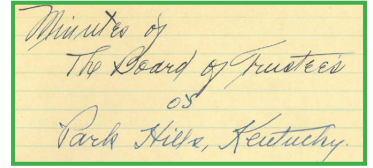 Minutes of
The Board of Trustees
of
Park Hills, Kentucky.